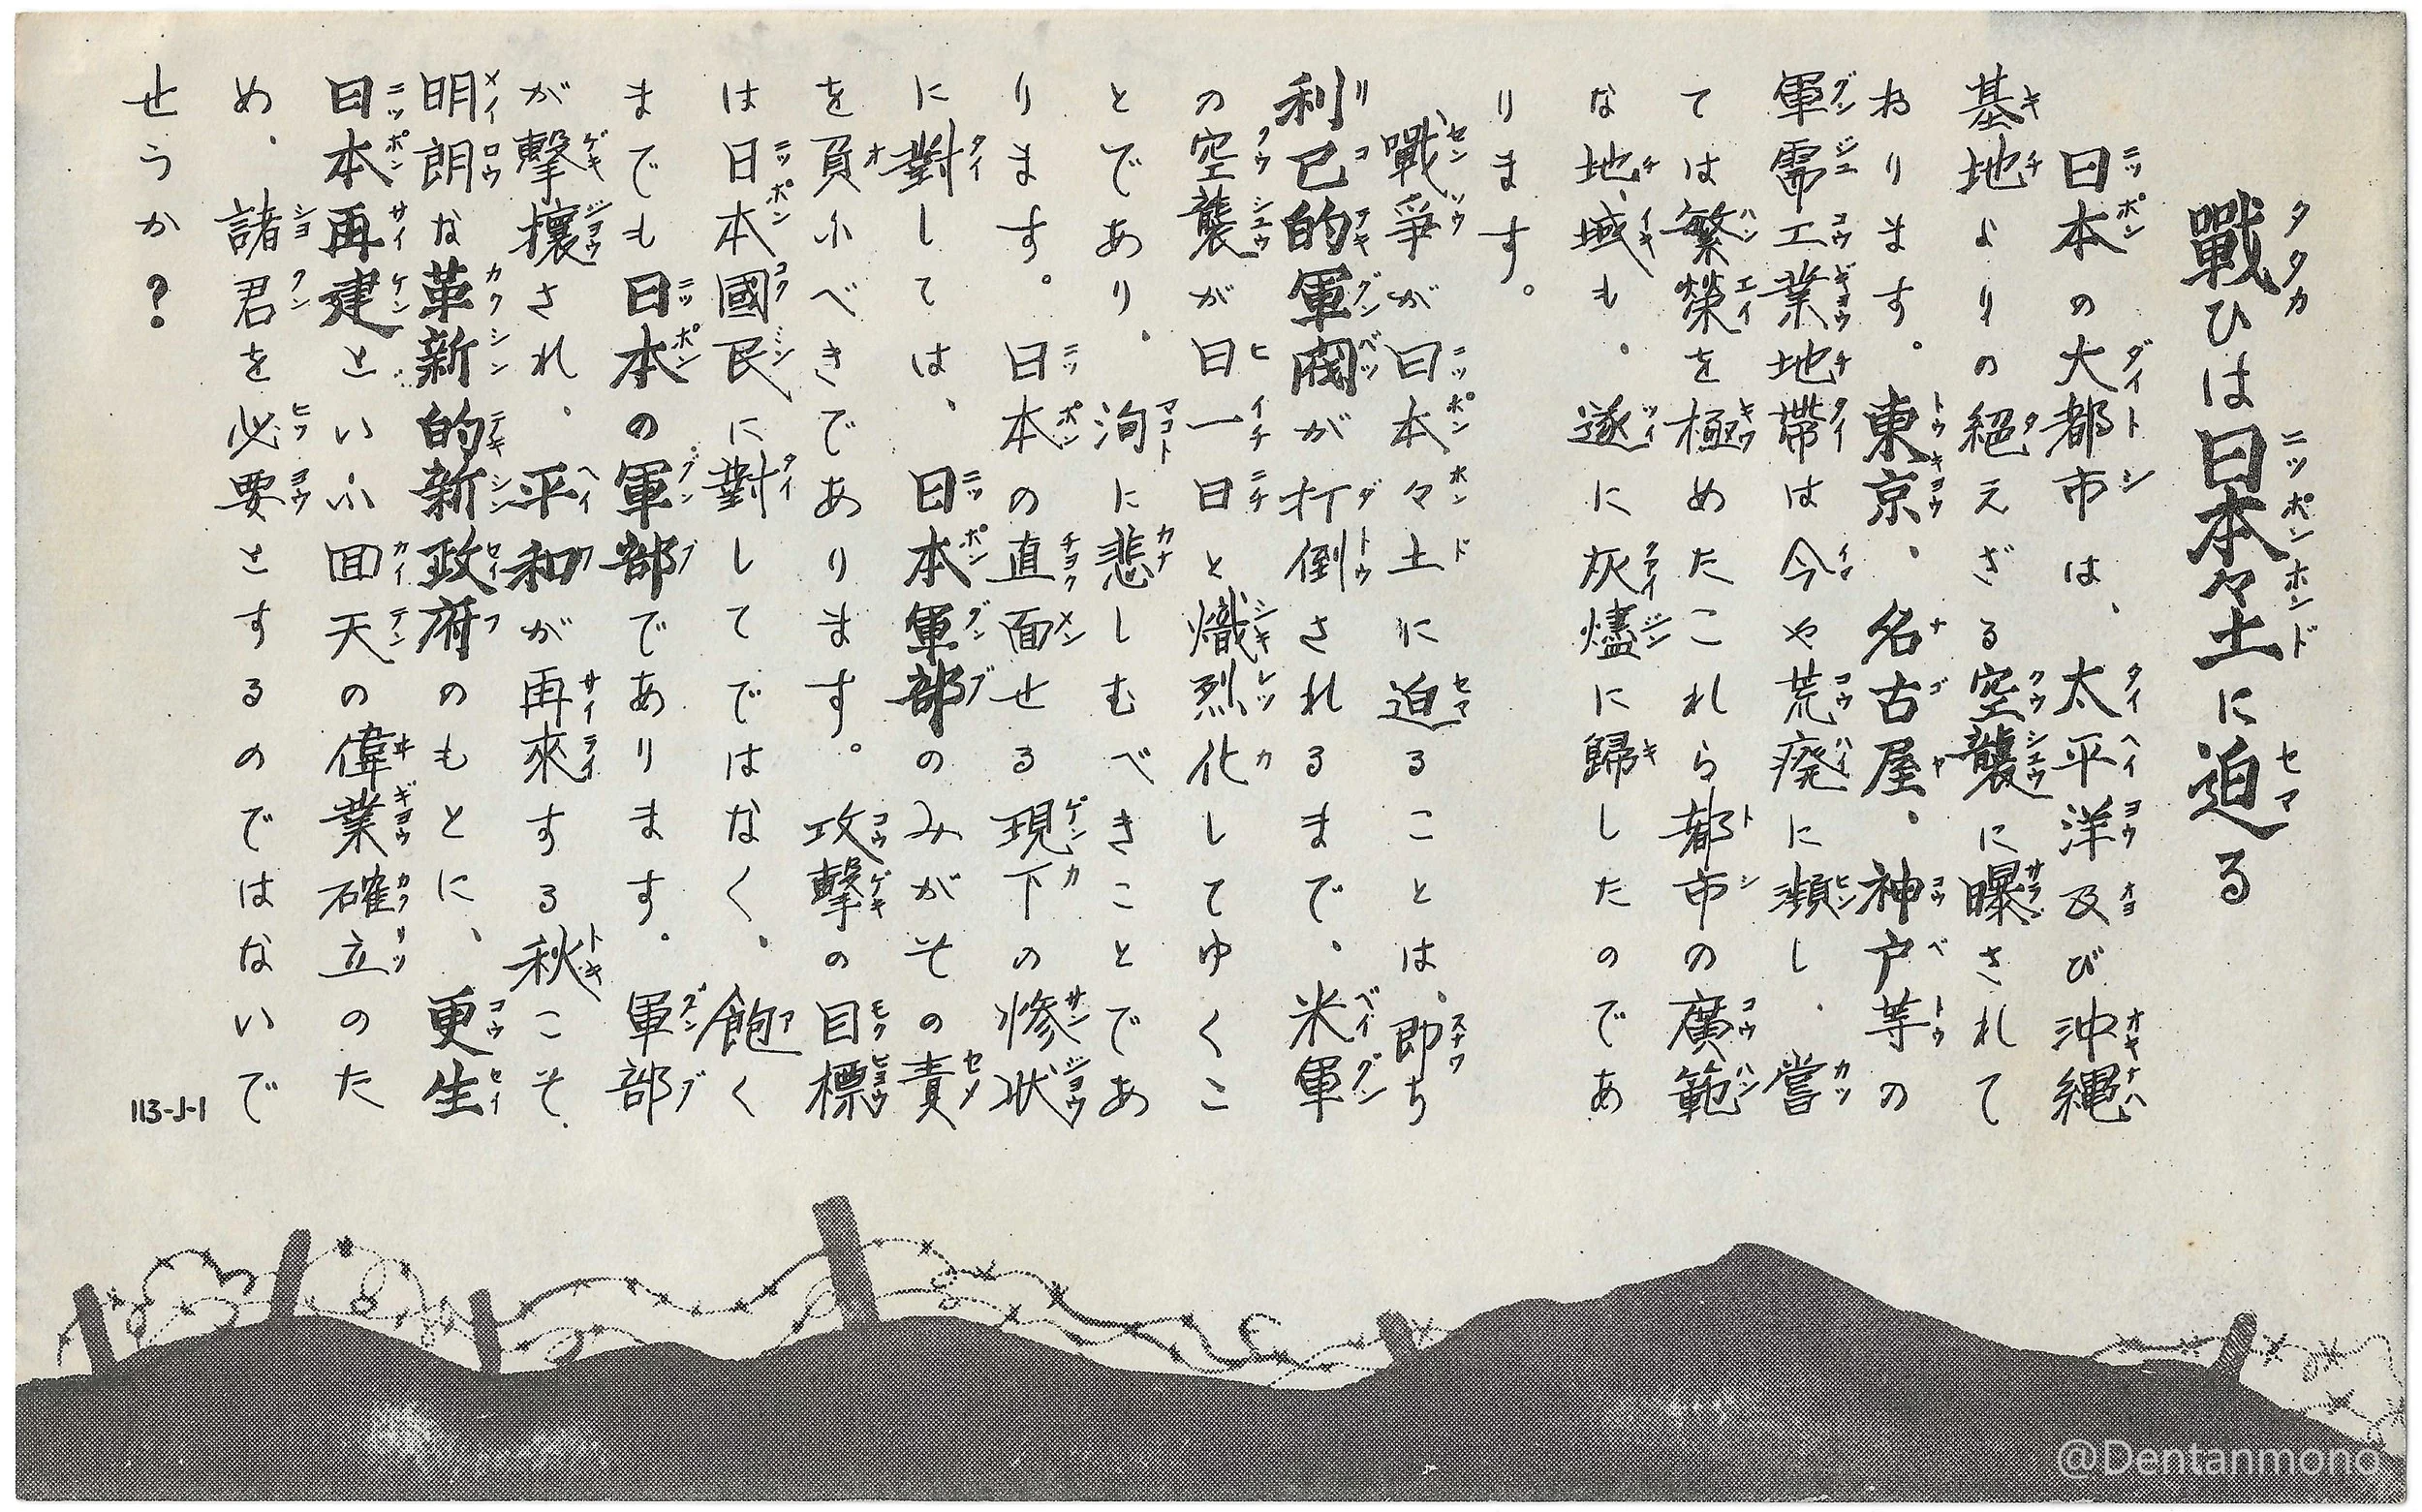 戰ひは日本々土に迫る
日本の大都市は、太平洋及び沖縄
基地よりの絕えざる空襲に曝されて
おります。東京、名古屋、神戸等の
軍需工業地帶は今や荒廃に瀕し、嘗
ては繁榮を極めたこれら都市の廣範
な地域も、遂に灰燼に歸したのであ
ります。
戰爭が日本々土に迫ることは、即ち
利己的軍閥が打倒されるまで、米軍
の空襲が日一日と熾烈化してゆくこ
とであり、洵に悲しむべきことであ
ります。日本の直面せる現下の惨状
に對しては、日本軍部のみがその責
を負ふべきであります。攻擊の目標
は日本國民に對してではなく、飽く
までも日本の軍部であります。軍部
が擊攘され、平和が再來する秋こそ、
明朗な革新的新政府のもとに、更生
日本再建といふ回天の偉業確立のた
め、諸君を必要とするのではないで
せうか？
113-J-1
@Dentanmono